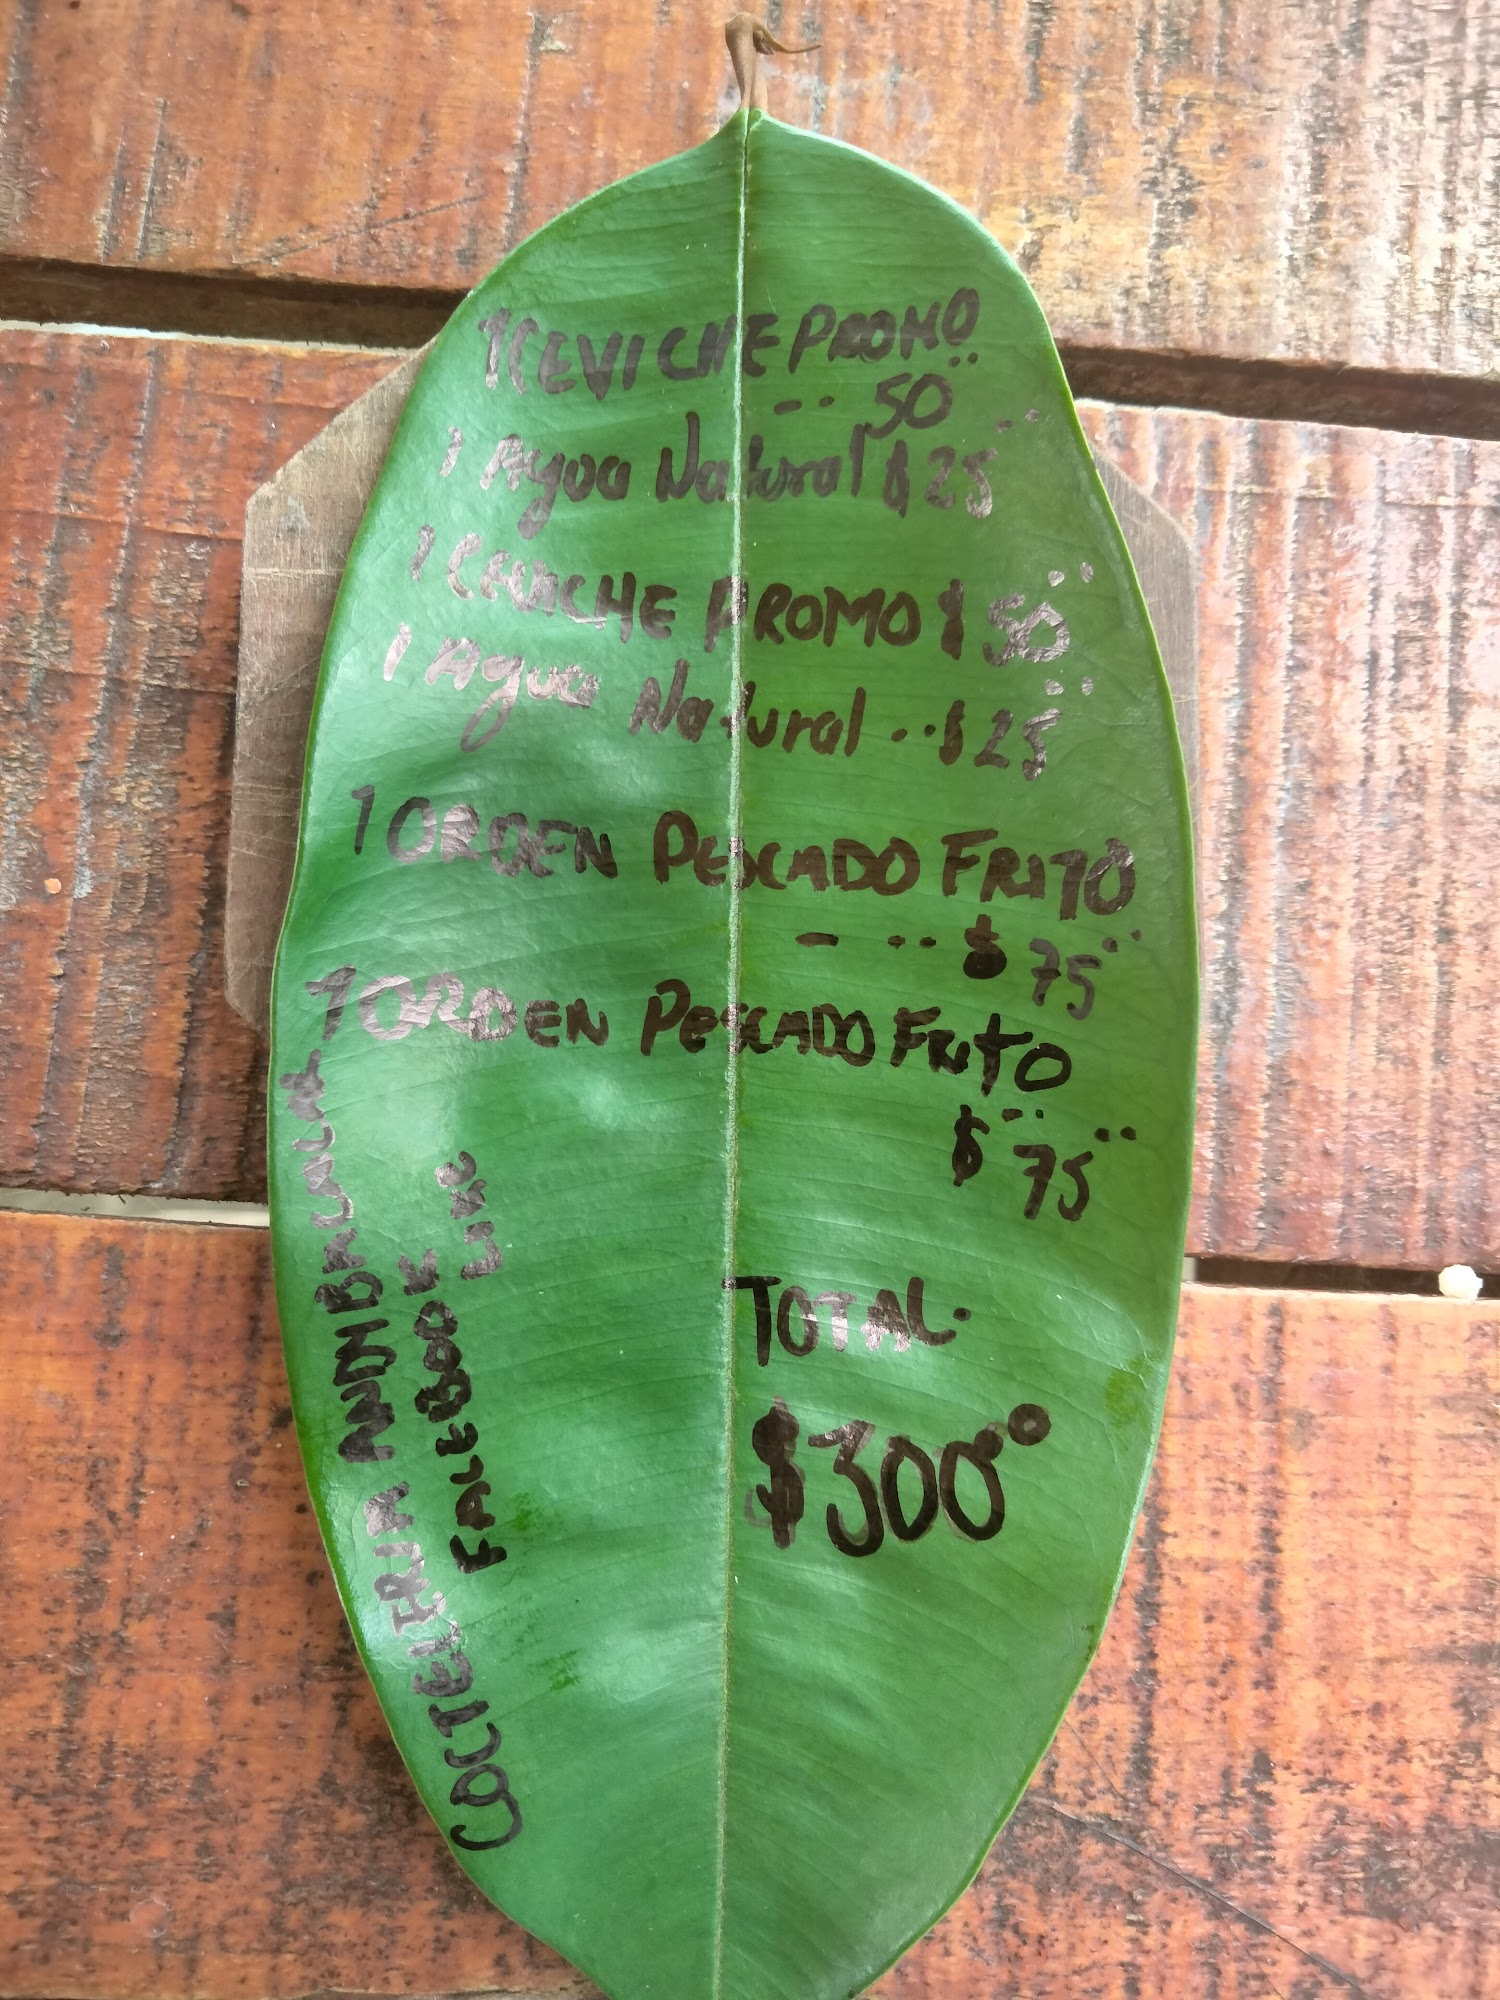 1 CEVICHE PROMO
-·· 50¨
1 Agua Natural $ 25¨
1 CEVICHE PROMO $ 50¨
1 Agua Natural ··$ 25¨
1 ORDEN PESCADO FRITO
- ·· $ 75¨
1 ORDEN PESCADO FRITO
$¨ 75¨
TOTAL.
$300°
COCTELERIA
FACEBOOK
LIKE